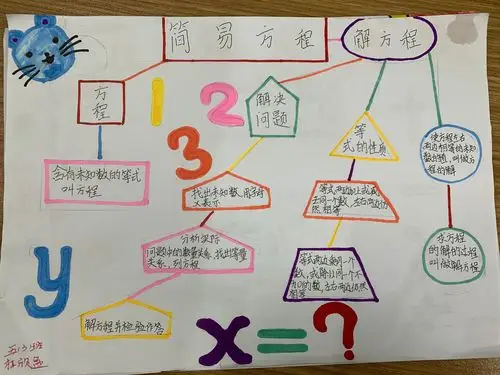 简易方程
解方程
方程
解决
问题
等
式的性质
使方程左右
两边相等的未知
数的值,叫做方
程的解
含有未知数的等式
叫方程
找出未知数,用字母
x表示
等式两边加上或减
去同一个数,左右两边仍
然相等
分析实际
问题中的数量关系,找出等量
关系,列方程
等式两边乘同一个
数,或除以同一个不
为0的数,左右两边仍然
相等
求方程
的解的过程
叫做解方程
解方程并检验作答
1
2
3
y
x=?
五(3)班